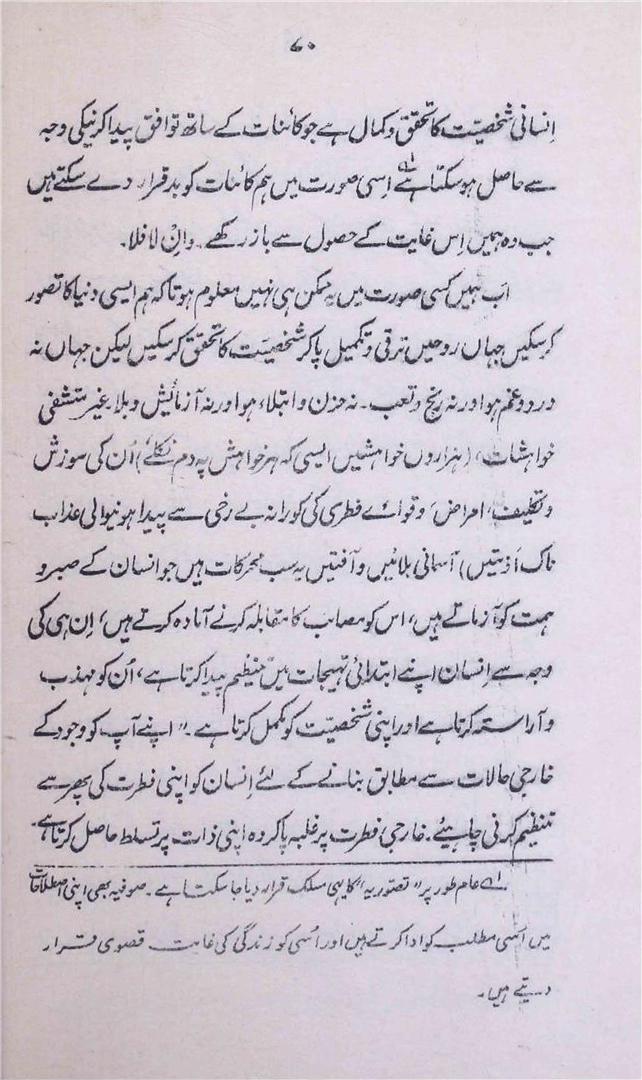 ۷۰
انسانی شخصیّت کا تحقق و کمال ہے جو کائنات کے ساتھ توافق پیدا کرنیکی وجہ
سے حاصل ہوسکتا ہے لہ اِسی صورت میں ہم کائنات کو بد قرار دے سکتے ہیں
جب وہ ہمیں اِس غایت کے حصول سے باز رکھے۔ وانْ لا فلا۔
اب ہمیں کسی صورت میں یہ ممکن ہی نہیں معلوم ہوتا کہ ہم ایسی دنیا کا تصور
کرسکیں جہاں روحیں ترقی و تکمیل پاکر شخصیّت کا تحقق کرسکیں لیکن جہاں نہ
درد و غم ہو اور نہ رنج و تعب۔ نہ حزن و ابتلاء ہو اور نہ آزمایٔش و بلا۔ غیر متشفی
خواہشات، (ہزاروں خواہشیں ایسی کہ ہر خواہش پہ دم نکلے) اُن کی سوزش
و تکلیف، امراض، و قوائے فطری کی کورانہ بے رخی سے پیدا ہونیوالی عذاب
ناک اَذیتیں) آسمانی بلائیں و آفتیں یہ سب محرکات ہیں جو انسان کے صبر و
ہمت کو آزماتے ہیں، اس کو مصائب کا مقابلہ کرنے آمادہ کرتے ہیں، اِن ہی کی
وجہ سے اِنسان اپنے ابتدائی تہیجات میں تنظیم پیدا کرتا ہے، اُن کو مہذب
و آراستہ کرتا ہے اور اپنی شخصیّت کو مکمل کرتا ہے۔ "اپنے آپ کو وجود کے
خارجی حالات سے مطابق بنانے کے لئے اِنسان کو اپنی فطرت کی پھر سے
تنظیم کرنی چاہیٔے۔ خارجی فطرت پر غلبہ پاکر وہ اپنی ذات پر تسلط حاصل کرتا ہے۔
لہ عام طور پر "تصوّریہ" کا یہی مسلک قرار دیا جاسکتا ہے۔ صوفیہ بھی اپنی اصطلاحات
میں اسی مطلب کو ادا کرتے ہیں اور اسُی کو زندگی کی غایت قصوی قرار
دیتے ہیں۔